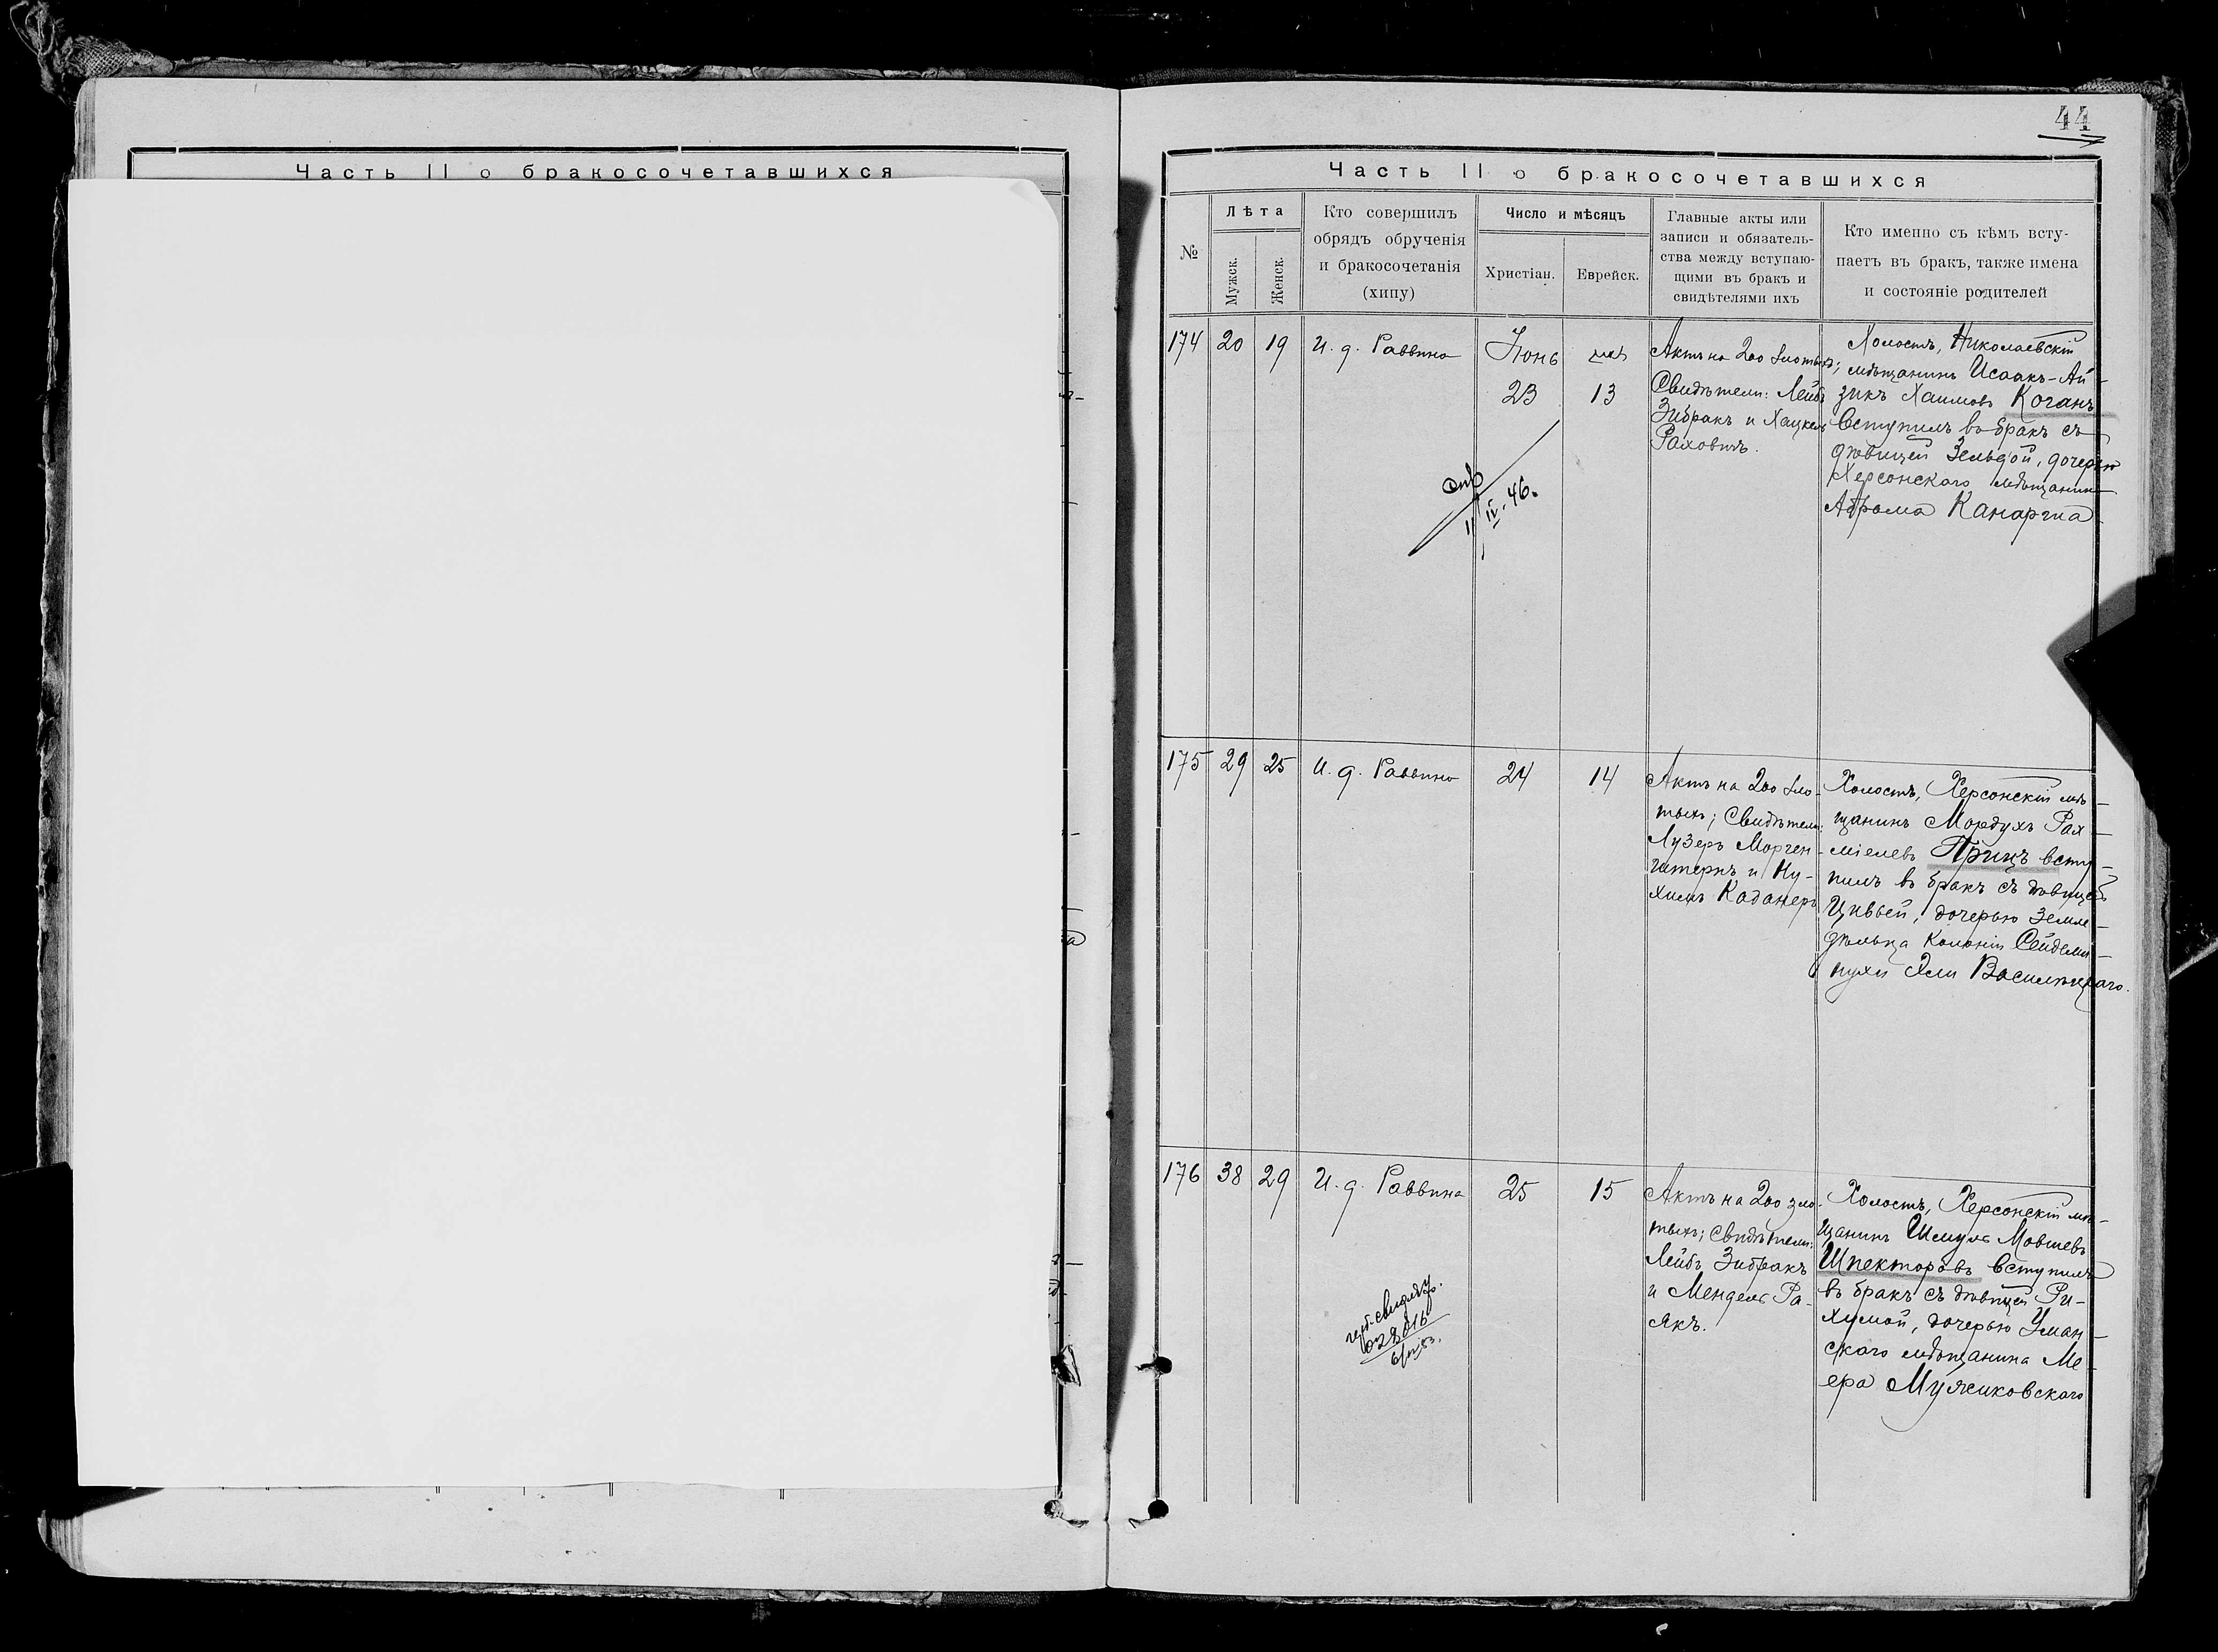 Часть II о бракосочетавшихся
44
Часть II о бракосочетавшихся
№
Лѣта
Мужск.
Женск.
Кто совершилъ
обрядъ обрученія
и бракосочетанія
(хипу)
Число и мѣсяцъ
Христіан.
Еврейск.
Главные акты или
записи и обязатель-
ства между вступаю-
щими въ бракъ и
свидѣтелями ихъ
Кто именно съ кѣмъ всту-
паетъ въ бракъ, также имена
и состояніе родителей
174
20
19
И. д. Раввина
Іюнь
23
13
Актъ на 200 злотыхъ;
Свидѣтели: Лейбъ
Зибракъ и Хацкель
Раховичъ.
Холостъ, Николаевскій
мѣщанинъ Исаакъ-Ай-
зикъ Хаимовъ Коганъ
вступилъ въ бракъ съ
дѣвицей Зельдой, дочерью
Херсонскаго мѣщанина
Абрама
11/IV-46.
175
29
25
И. д. Раввина
24
14
Актъ на 200 зло-
тыхъ; Свидѣтели:
Лузеръ Морген-
штернъ и Ну-
химъ Каданеръ
Холостъ, Херсонскій мѣ-
щанинъ Мордухъ Рах-
міелевъ Прицъ всту-
пилъ въ бракъ съ дѣвицей
Цивьей, дочерью земле-
дѣльца колоніи Сейдеми-
нухи
176
38
29
И. д. Раввина
25
15
Актъ на 200 зло-
тыхъ; Свидѣтели:
Лейбъ Зибракъ
и Мендель Ра-
сякъ.
Холостъ, Херсонскій мѣ-
щанинъ Шмуль Мовшевъ
Шпекторовъ вступилъ
въ бракъ съ дѣвицей Ри-
хумой, дочерью Уман-
скаго мѣщанина Ме-
ера Мужиковскаго